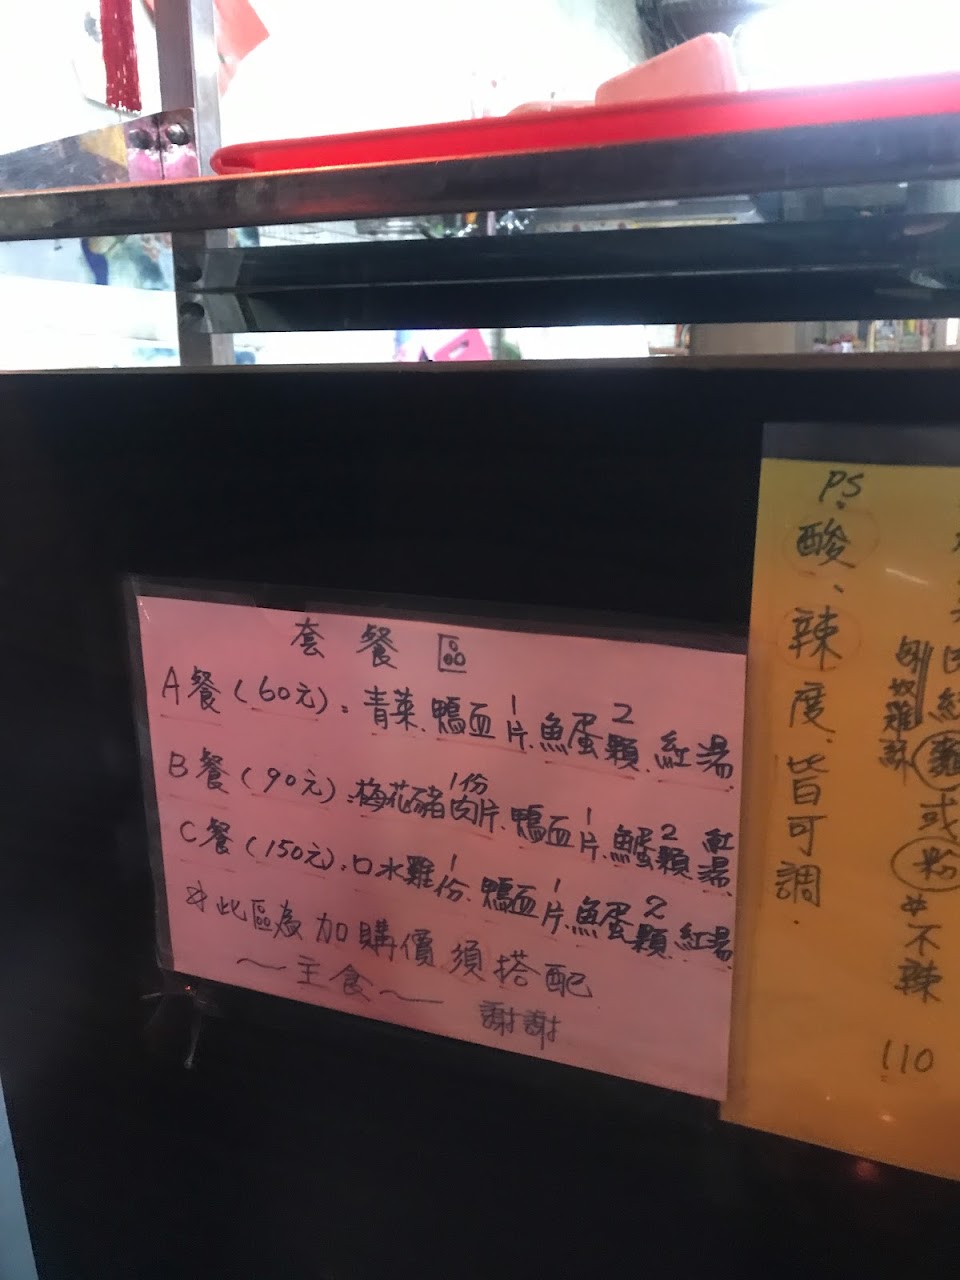 套餐區
A餐(60元)：青菜.鴨血1片.魚蛋2顆.紅湯
B餐(90元)：梅花豬肉片1份.鴨血1片.魚蛋2顆.紅湯
C餐(150元)：口水雞1份.鴨血1片.魚蛋2顆.紅湯
※此區為加購價須搭配
～主食～
謝謝
PS.酸、辣度.皆可調.
麵或粉※不辣
110